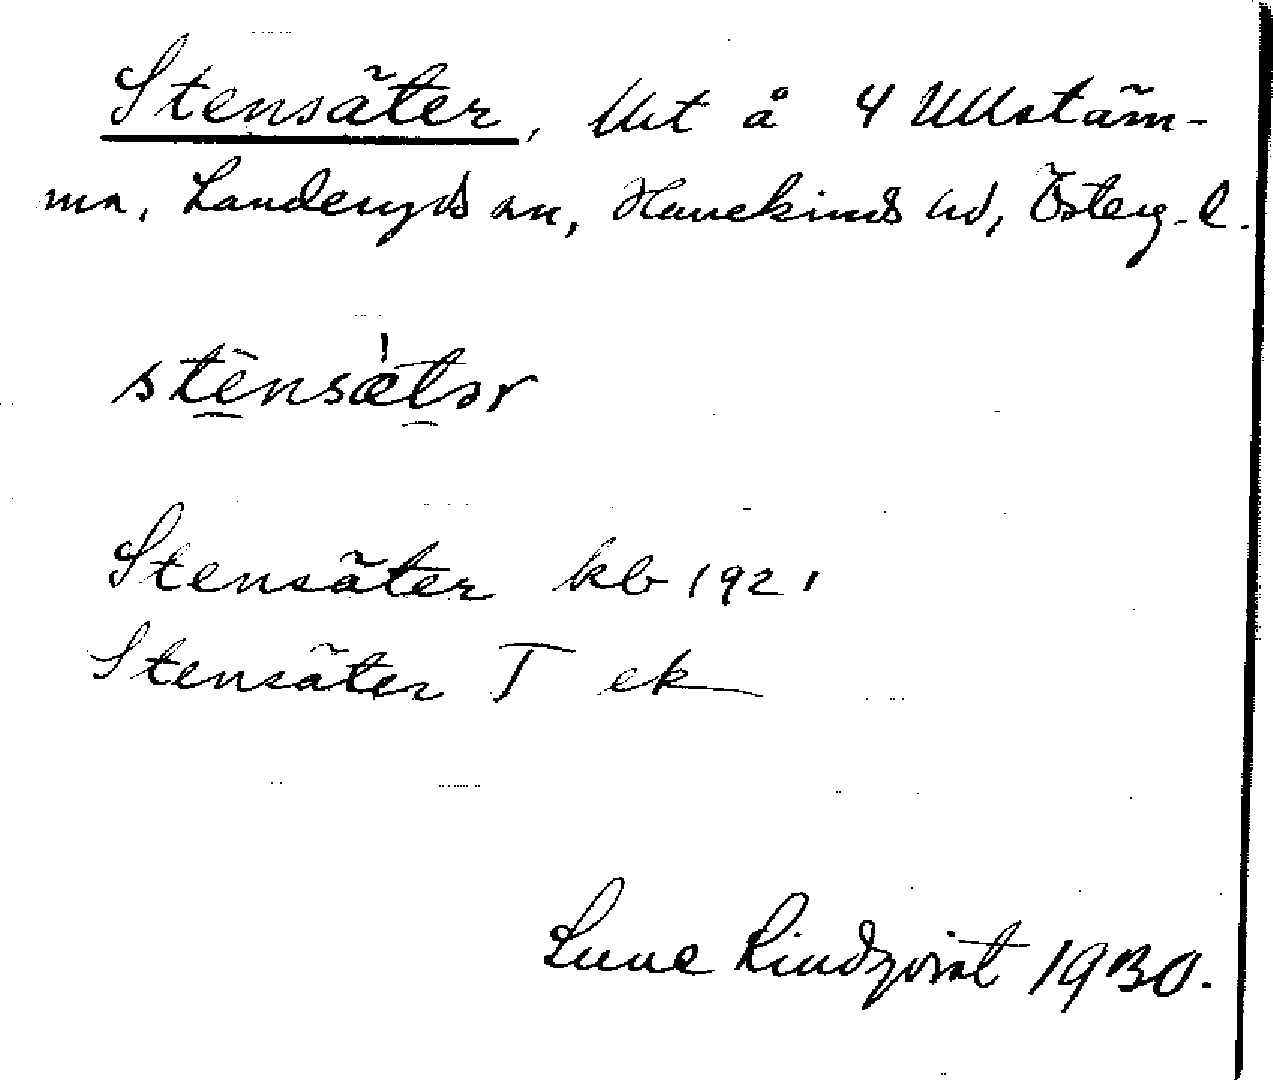 Stensäter, Utt å 4 Ullstäm-
ma, Landeryds sn, Hanekinds hd, Österg. l.
stènsǽtər
Stensäter kb 1921
Stensäter T ek
Sune Lindqvist 1930.